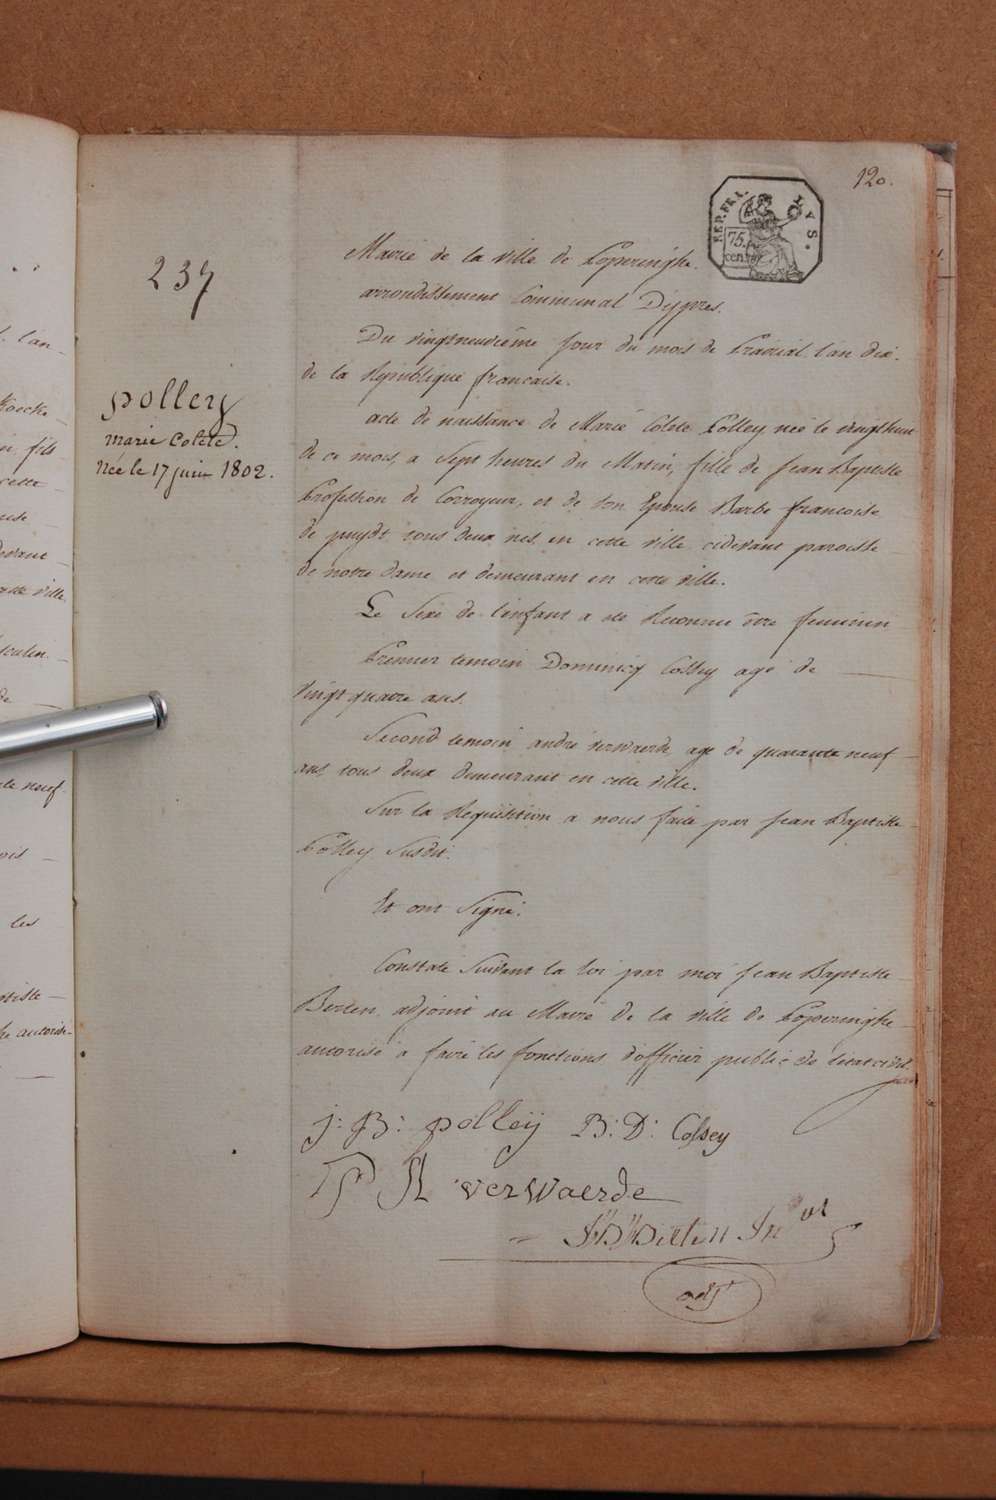 120.
REP. FRA.
LYS.
75.
cent.
237
Mairie de la ville de Poperinghe.
arrondissement Communal D'ypres.
Du vingtneuvième jour du mois de Prairial l'an dix.
de la République francaise.
polleij
marie Colete.
née le 17 juin 1802.
acte de naissance de Marie Colete Polley née le vingthuit
de ce mois, a Sept heures du Matin, fille de Jean Baptiste
Profession de Corroyeur, et de Son Epouse Barbe francoise
de puydt tous deux nés en cette ville cidevant paroisse
de notre dame et demeurant en cette ville.
Le Sexe de l'enfant a été Reconnu être feminin
Premier temoin Dominicq Cossey agé de
vingt quatre ans.
Second temoin andré verwaerde agé de quarante neuf
ans, tous deux demeurant en cette ville.
Sur la Requisition a nous faite par Jean Baptiste
Polley Susdit.
Et ont Signé.
Constaté Suivant la loi par moi Jean Baptiste
Berten adjoint au Maire de la ville de Poperinghe
autorisé a faire les fonctions d'officier public de l'etat civil
j: B: polleij B: D: Cossey
P A verwaerde
J B Berten
adjt